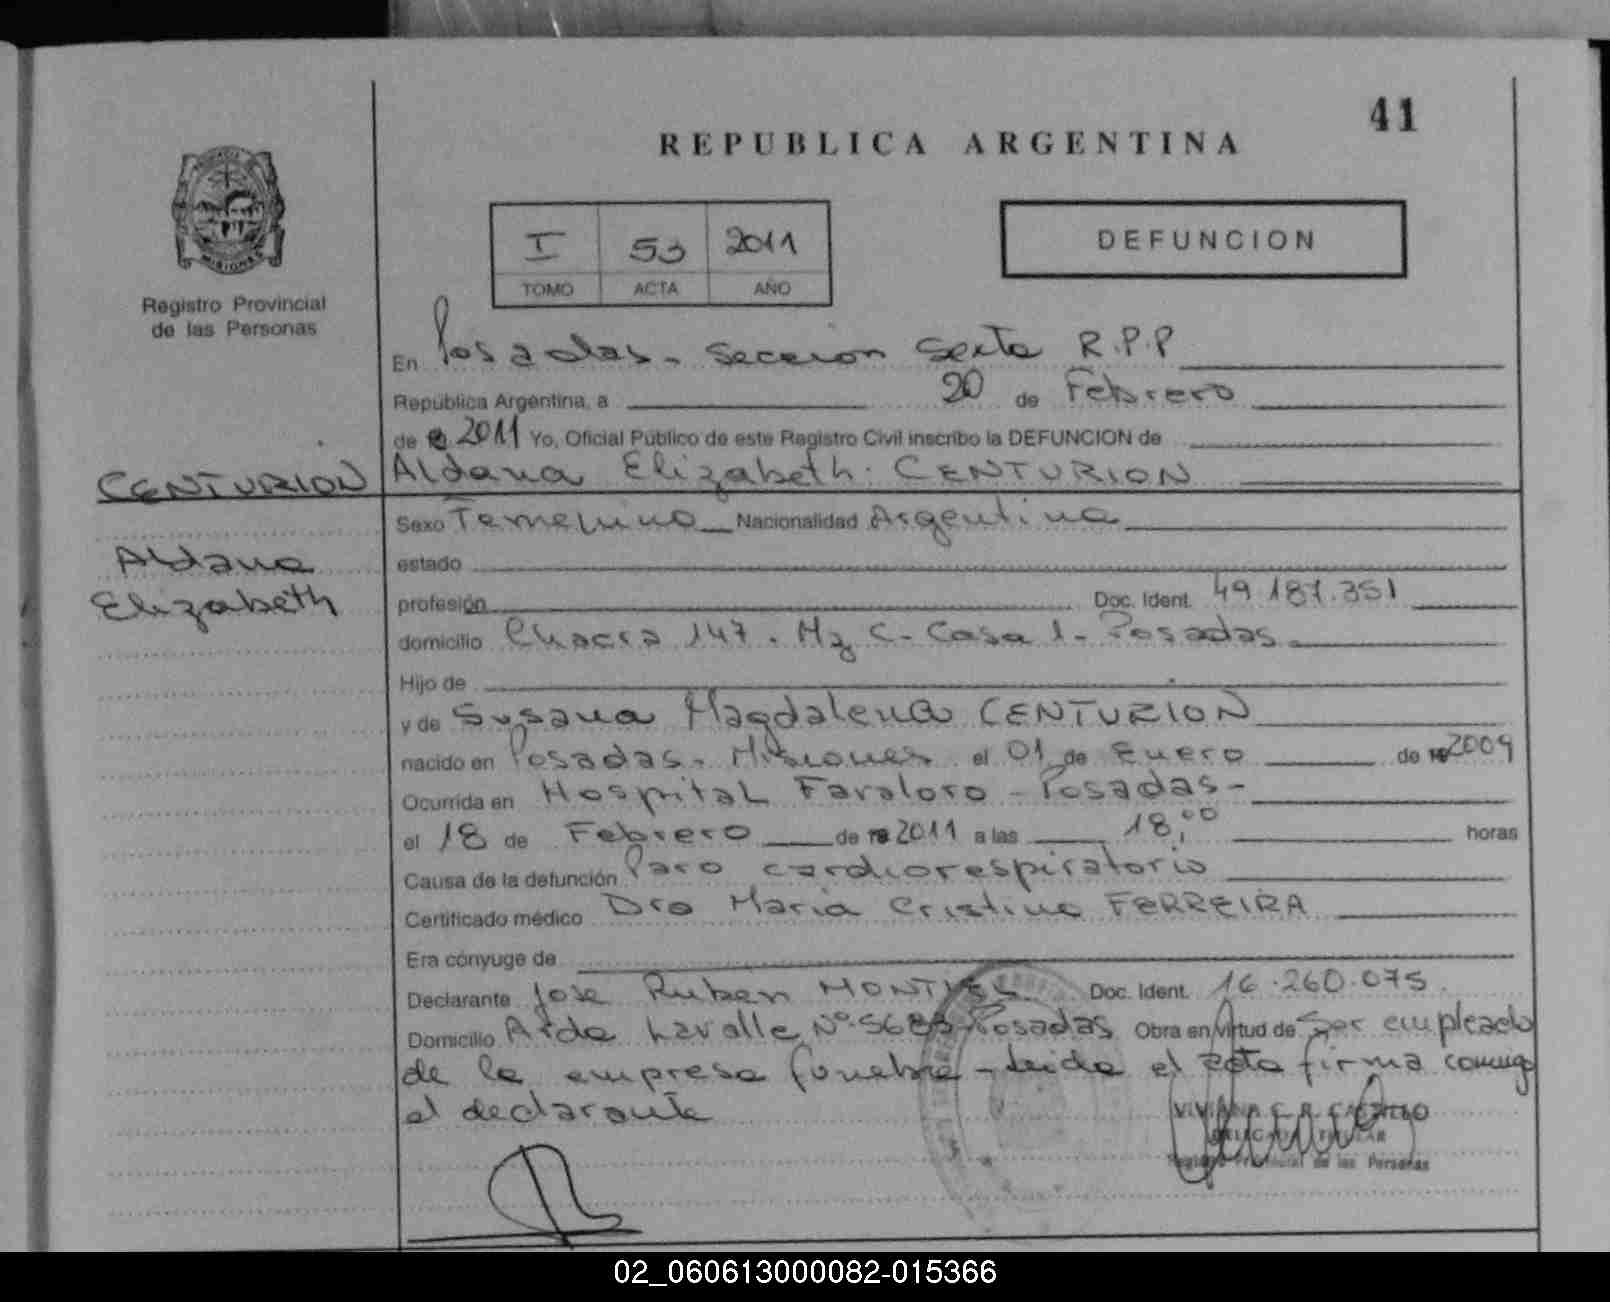 41
REPUBLICA ARGENTINA
MISIONES
Registro Provincial
de las Personas
I 53 2011
TOMO ACTA AÑO
DEFUNCION
En Posadas - Seccion Sexta R.P.P
República Argentina, a 20 de Febrero
de 2011 Yo, Oficial Público de este Registro Civil inscribo la DEFUNCION de
CENTURION
Aldana Elizabeth. CENTURION
Aldana
Elizabeth
Sexo Femenino Nacionalidad Argentina
estado
profesión Doc. Ident. 49.187.351
domicilio Chacra 147. Mz C- Casa 1- Posadas
Hijo de
y de Susana Magdalena CENTURION
nacido en Posadas. Misiones el 01 de Enero de 2009
Ocurrida en Hospital Favaloro - Posadas-
el 18 de Febrero de 2011 a las 18,00 horas
Causa de la defunción Paro cardiorespiratorio
Certificado médico Dra Maria Cristina FERREIRA
Era cónyuge de
Declarante Jose Ruben MONTIEL Doc. Ident. 16.260.075
Domicilio Avda Lavalle Nº 5683 Posadas Obra en virtud de Ser empleado
de la empresa funebre - Leida el acta firma conmigo
el declarante
VIVIANA C. R. CASTILLO
DELEGADA TITULAR
Registro Provincial de las Personas
02_060613000082-015366